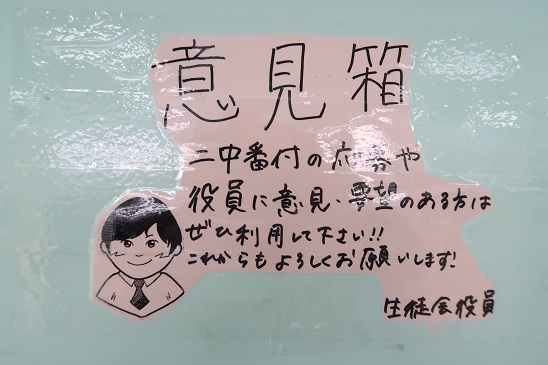 意見箱
二中番付の応募や
役員に意見・要望のある方は
ぜひ利用して下さい!!
これからもよろしくお願いします!
生徒会役員